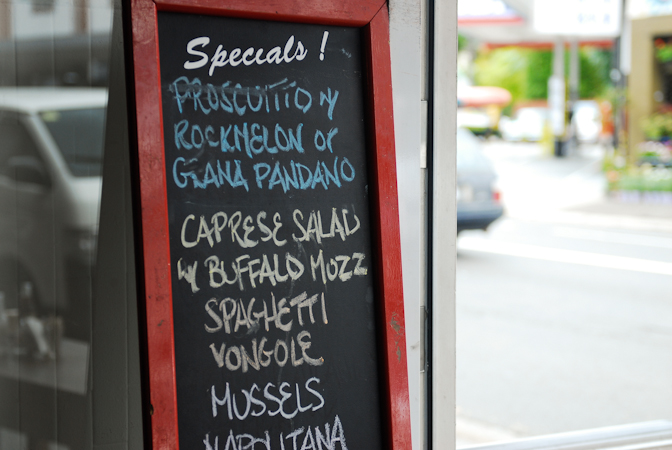 Specials !
PROSCUITTO W
ROCKMELON OR
GRANA PANDANO
CAPRESE SALAD
W BUFFALO MOZZ
SPAGHETTI
VONGOLE
MUSSELS
NAPOLITANA